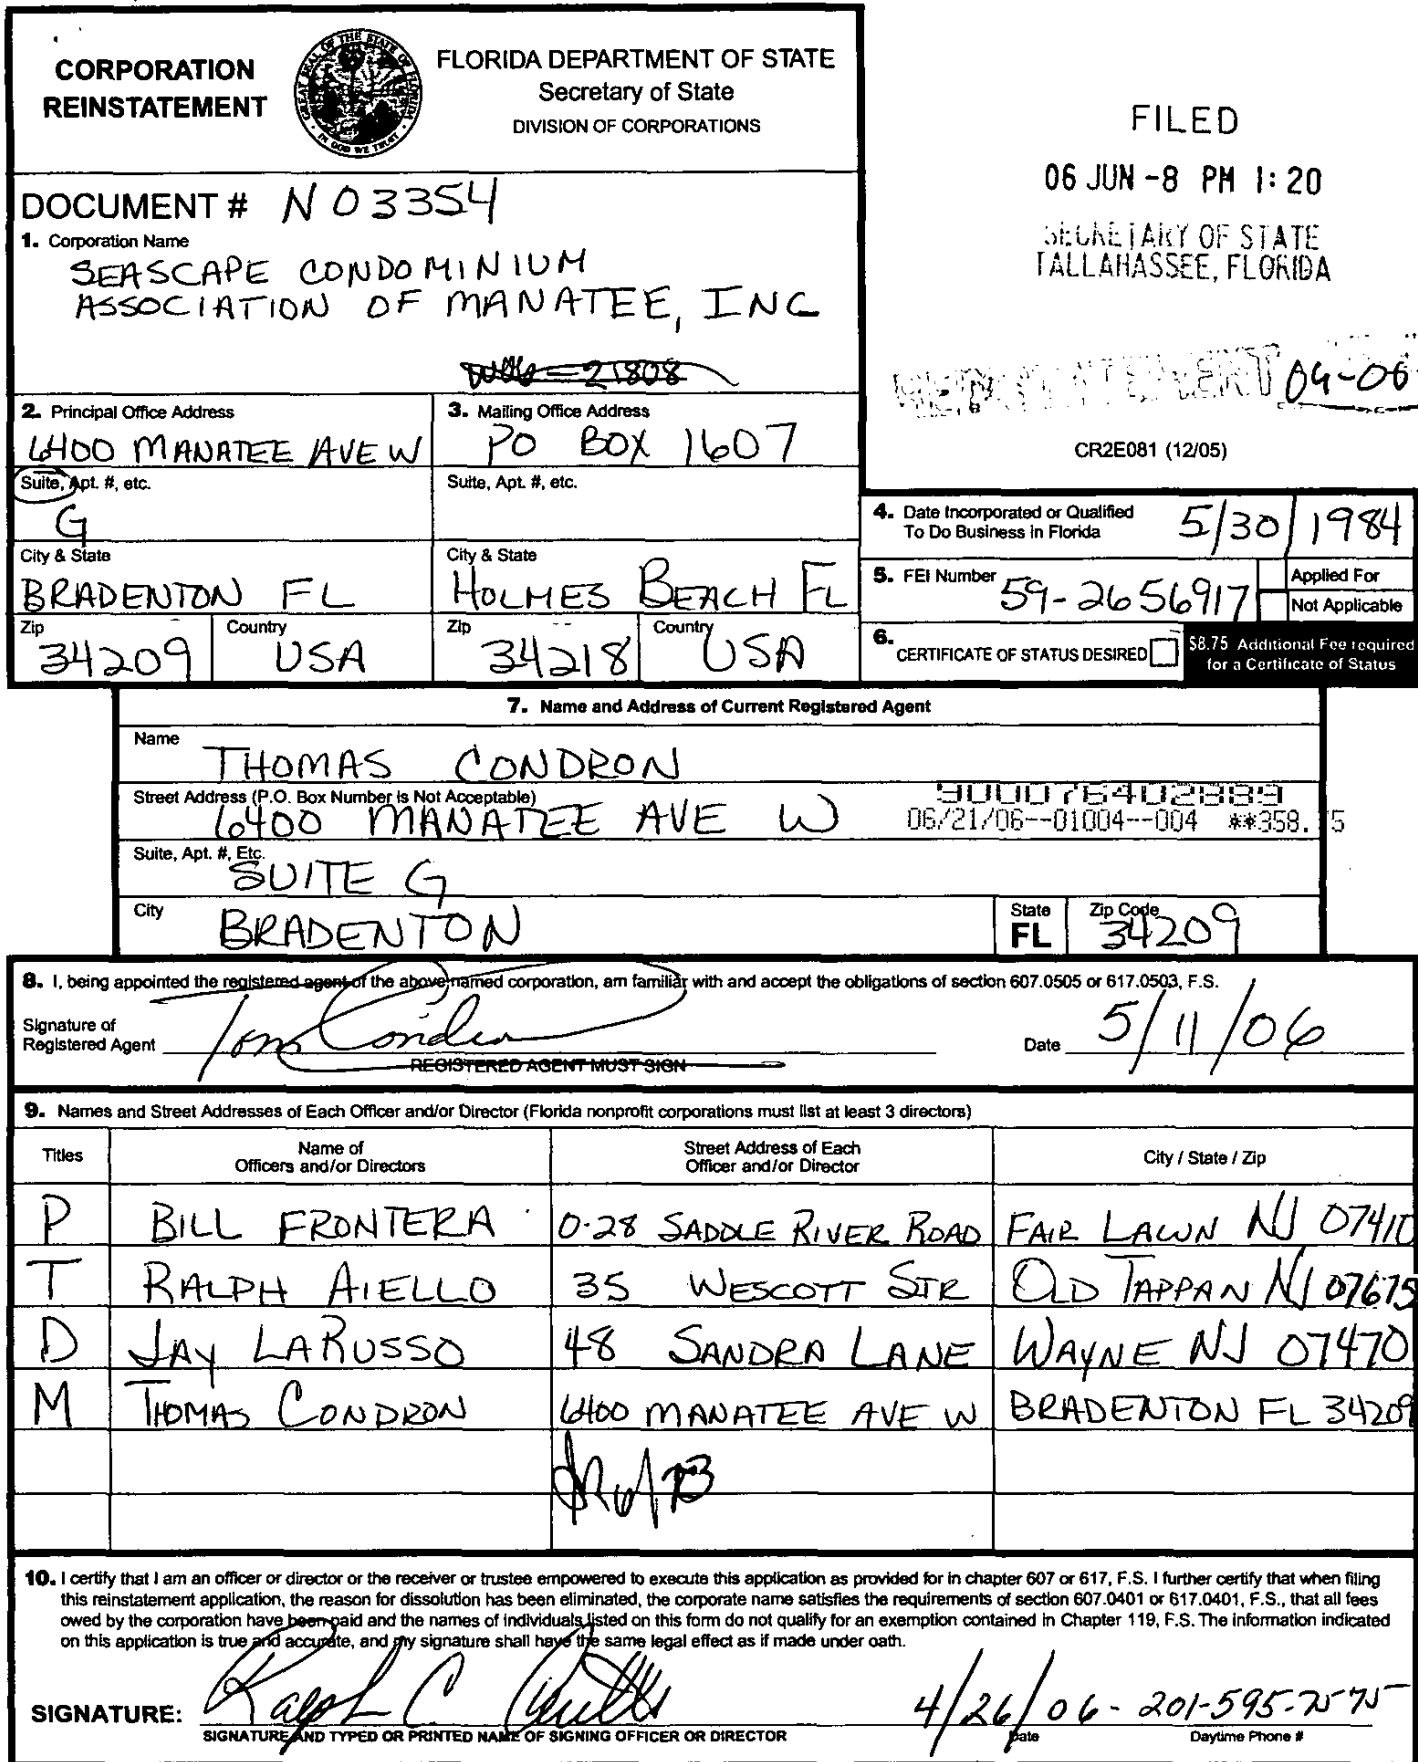 CORPORATION
REINSTATEMENT
GREAT SEAL OF THE STATE OF FLORIDA
IN GOD WE TRUST
FLORIDA DEPARTMENT OF STATE
Secretary of State
DIVISION OF CORPORATIONS
FILED
06 JUN -8 PM 1:20
SECRETARY OF STATE
TALLAHASSEE, FLORIDA
DOCUMENT # N03354
1. Corporation Name
SEASCAPE CONDOMINIUM
ASSOCIATION OF MANATEE, INC
21808
04-06
CR2E081 (12/05)
2. Principal Office Address
6400 MANATEE AVE W
Suite, Apt. #, etc.
G
City & State
BRADENTON FL
Zip
34209
Country
USA
3. Mailing Office Address
PO BOX 1607
Suite, Apt. #, etc.
City & State
HOLMES BEACH FL
Zip
34218
Country
USA
4. Date Incorporated or Qualified
To Do Business in Florida
5/30/1984
5. FEI Number
59-2656917
Applied For
Not Applicable
6. CERTIFICATE OF STATUS DESIRED
$8.75 Additional Fee required
for a Certificate of Status
7. Name and Address of Current Registered Agent
Name
THOMAS CONDRON
Street Address (P.O. Box Number is Not Acceptable)
6400 MANATEE AVE W
900076402889
06/21/06--01004--004 **358.75
Suite, Apt. #, Etc.
SUITE G
City
BRADENTON
State
FL
Zip Code
34209
8. I, being appointed the registered agent of the above named corporation, am familiar with and accept the obligations of section 607.0505 or 617.0503, F.S.
Signature of
Registered Agent
Tom Condron
REGISTERED AGENT MUST SIGN
Date 5/11/06
9. Names and Street Addresses of Each Officer and/or Director (Florida nonprofit corporations must list at least 3 directors)
Titles
Name of
Officers and/or Directors
Street Address of Each
Officer and/or Director
City / State / Zip
P BILL FRONTERA 0-28 SADDLE RIVER ROAD FAIR LAWN NJ 07410
T RALPH AIELLO 35 WESCOTT STR OLD TAPPAN NJ 07675
D JAY LARUSSO 48 SANDRA LANE WAYNE NJ 07470
M THOMAS CONDRON 6400 MANATEE AVE W BRADENTON FL 34209
10. I certify that I am an officer or director or the receiver or trustee empowered to execute this application as provided for in chapter 607 or 617, F.S. I further certify that when filing
this reinstatement application, the reason for dissolution has been eliminated, the corporate name satisfies the requirements of section 607.0401 or 617.0401, F.S., that all fees
owed by the corporation have been paid and the names of individuals listed on this form do not qualify for an exemption contained in Chapter 119, F.S. The information indicated
on this application is true and accurate, and my signature shall have the same legal effect as if made under oath.
SIGNATURE: Ralph C 4/26/06 - 201-595-7575
SIGNATURE AND TYPED OR PRINTED NAME OF SIGNING OFFICER OR DIRECTOR
Date
Daytime Phone #